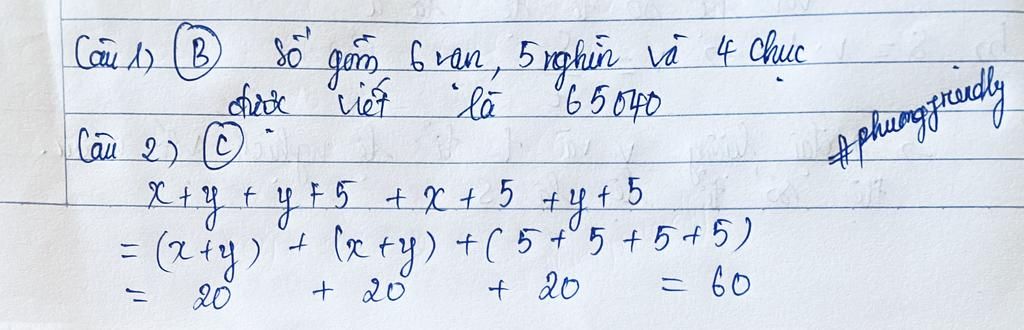 Câu 1) B Số gồm 6 vạn, 5 nghìn và 4 chục
được viết là 65040
#phuongfriendly
Câu 2) C
x + y + y + 5 + x + 5 + y + 5
= (x+y) + (x+y) + (5 + 5 + 5 + 5)
= 20 + 20 + 20 = 60